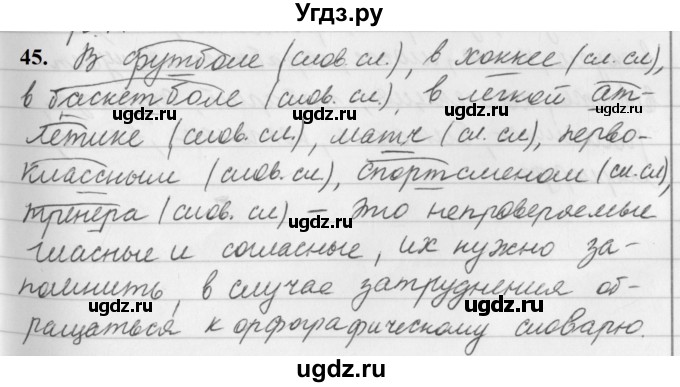 Угдз.ру
45. В футболе (слов. сл.), в хоккее (сл. сл),
в баскетболе (слов. сл), в легкой ат-
летике (слов. сл.), матч (сл. сл), перво-
классным (слов. сл), спортсменом (сл. сл),
тренера (слов. сл) – это непроверяемые
гласные и согласные, их нужно за-
помнить, в случае затруднения об-
ращаться к орфографическому словарю.
ugdz.ru
ugdz.ru
ugdz.ru
ugdz.ru
ugdz.ru
ugdz.ru
ugdz.ru
ugdz.ru